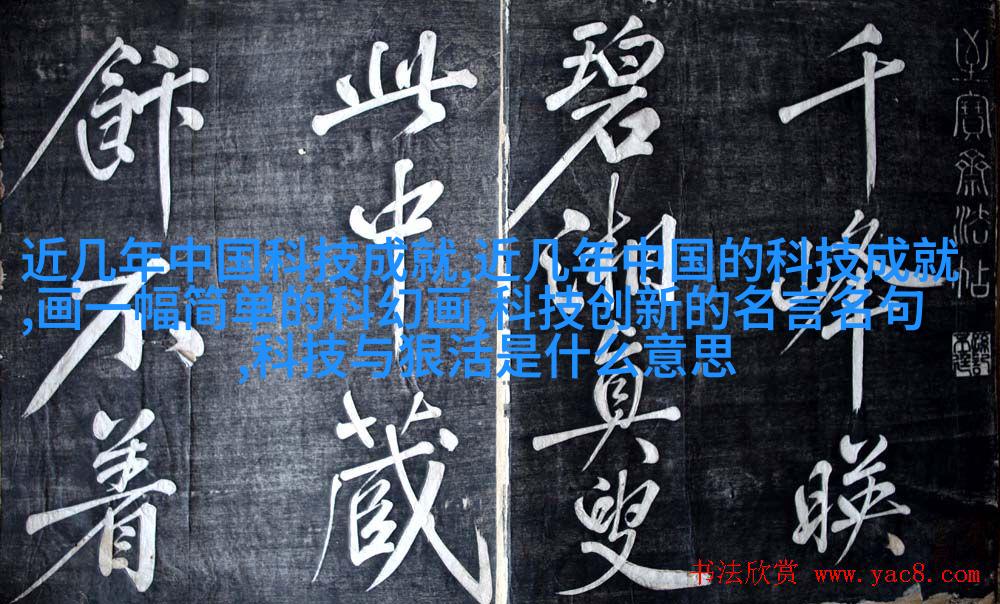 寶齋帖
千峰映
碧湘真叟
此中藏
飰不着
近几年中国科技成就,近几年中国的科技成就
,画一幅简单的科幻画,科技创新的名言名句
,科技与狠活是什么意思
书法欣赏 www.yac8.com